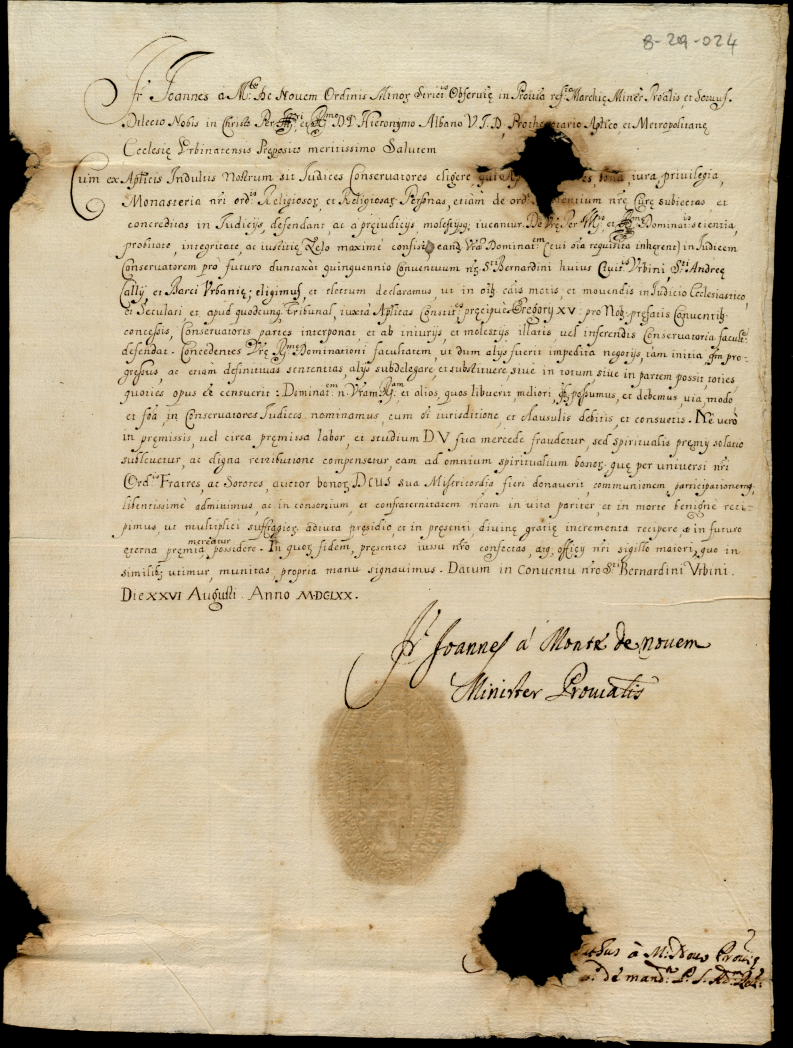 8-29-024
Fr. Joannes a M.te de Novem Ordinis Minor. Strict.o Observ.ię in Provi.a ref.ta Marchię Minr̃ Proãlis et Servus.
Dilecto Nobis in Christo Per et D.D. Hieronymo Albano V.I.D. Prothonotario Apl̃ico, et Metropolitanę
Ecclesię Vrbinatensis Pręposito meritissimo Salutem
Cum ex Apl̃icis Indultis Nostrum sit Iudices Conservatores eligere, qui iura, privilegia,
Monasteria nr̃i ord.is Religiosor, et Religiosar Personas, etiam de ord. nr̃ę Curę subiectas, et
concreditas in Iudicijs, defendant ac a pręiudicijs, molestijsq; tueantur. De Vrę Per et Dominat.is scientia,
probitate, integritate, ac iustitię Zelo maxime confisi eand. Vrã Dominat.em (cui oĩa requisita inhęrent) in Iudicem
Conservatorem pro futuro duntaxat quinquennio Conventuum nr̃. S.ti Bernardini huius Civit.is Vrbini, S.ti Andreę
Callij, et Barci Vrbanię; eligimus, et electum declaramus, ut in oĩb. cãis motis, et movendis in Iudicio Ecclesiastico,
et Seculari et apud quodcunq. Tribunal, iuxta Apl̃icas Constit.es pręcipuè Gregorij XV. pro Nob. pręfatis Conventib.
concessis, Conservatoris partes interponat et ab iniurijs, et molestijs illatis, vel inferendis Conservatoria facult.e
defendat. Concedentes Vrę Dominationi facultatem, ut dum alijs fuerit impedita negotijs, tam initia q̃m pro-
gressus, ac etiam definitivas sententias, alijs subdelegare, et substituere, sive in totum sive in partem possit, toties,
quoties opus eẽ censuerit: Dominat.em n. Vram et alios, quos libuerit, meliori, q̃ possumus, et debemus, via, modo
et fõa, in Conservatores Iudices nominamus, cum oĩ iurisditione, et clausulis debitis, et consuetis. Ne verò
in pręmissis, vel circa pręmissa labor, et studium D.V. sua mercede fraudetur, sed spiritualis pręmij solatio
sublevetur, ac digna retributione compensetur, eam ad omnium spiritualium bonor, quę per universi nr̃i
Ord.is Fratres, ac Sorores, auctor bonor Deus sua Misericordia fieri donaverit, communionem, participationemq,
libentissimè admitimus, ac in consortium et confraternitatem nr̃am in vita pariter, et in morte benignè reci-
pimus, ut multiplici suffragior adiuta pręsidio, et in pręsenti divinę gratię incrementa recipere, & in futuro
ęterna pręmia mereatur possidere. In quor fidem, pręsentes iussu nr̃o confectas, atq. officij nr̃i sigillo maiori, quo in
similib. utimur, munitas, propria manu signavimus. Datum in Conventu nr̃o S.ti Bernardini Vrbini.
Die XXVI Augusti. Anno M.DCLXX.
Fr. Joannes á Monte de novem
Minister Provĩalis
à M. Novo
de mand.